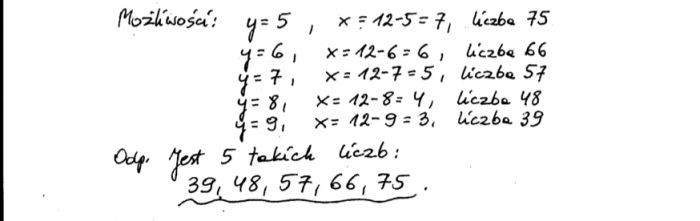 Możliwości: y=5, x=12-5=7, liczba 75
y=6, x=12-6=6, liczba 66
y=7, x=12-7=5, liczba 57
y=8, x=12-8=4, liczba 48
y=9, x=12-9=3, liczba 39
Odp. Jest 5 takich liczb:
39, 48, 57, 66, 75.